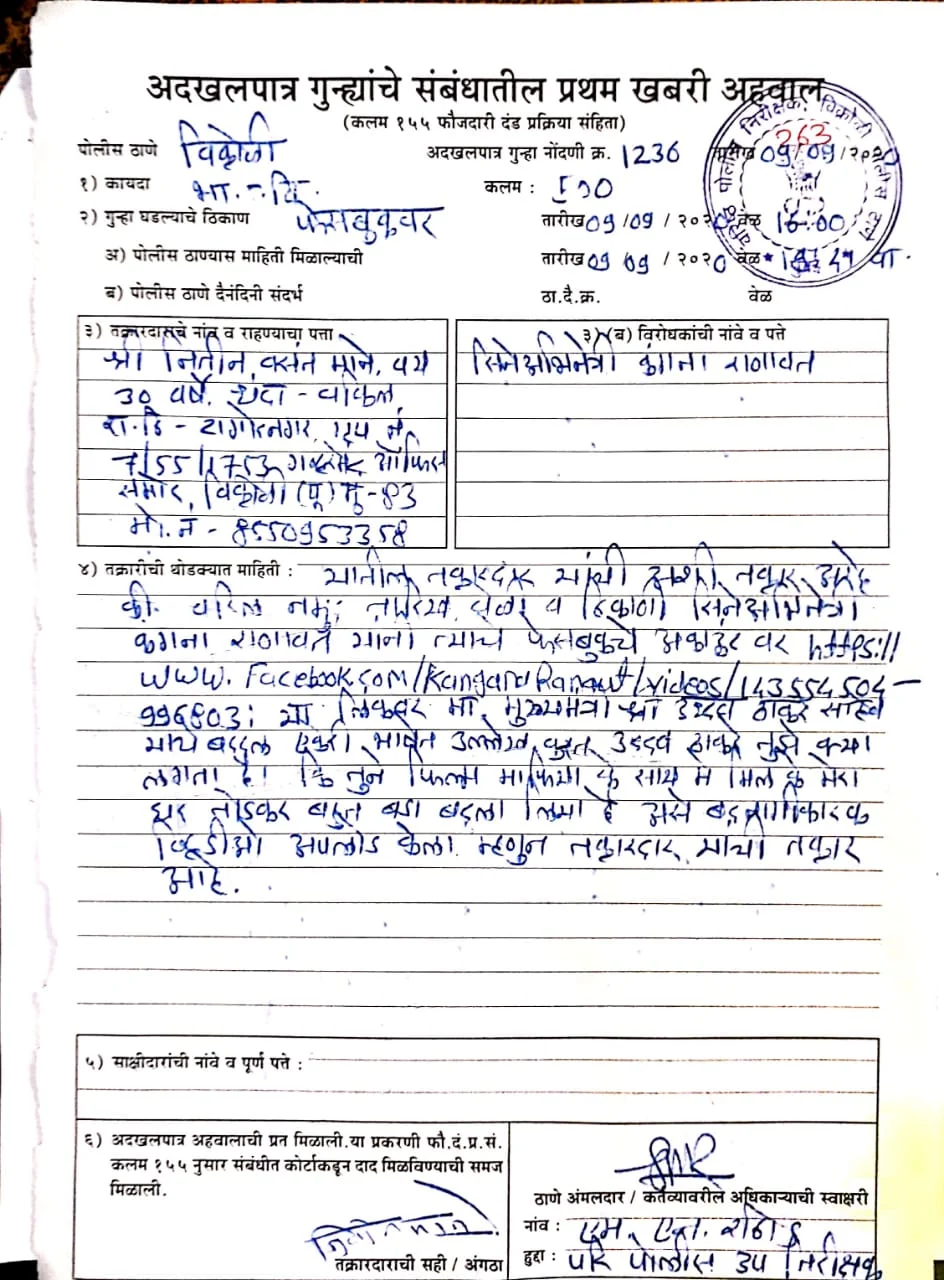 अदखलपात्र गुन्ह्यांचे संबंधातील प्रथम खबरी अहवाल
(कलम १५५ फौजदारी दंड प्रक्रिया संहिता)
पोलीस ठाणे विक्रोळी अदखलपात्र गुन्हा नोंदणी क्र. 1236 09/09/२०२०
263
१) कायदा भा. द. वि. कलम :
२) गुन्हा घडल्याचे ठिकाण फेसबुकवर तारीख 09/09/२०२० वेळ 16:00
अ) पोलीस ठाण्यास माहिती मिळाल्याची तारीख 09 09/२०२० वेळ वा.
ब) पोलीस ठाणे दैनंदिनी संदर्भ ठा.दै.क्र. वेळ
३) तक्रारदाराचे नांव व राहण्याचा पत्ता
श्री नितीन वसंत माने, वय
30 वर्षे, धंदा - वकिल,
रा.ठि - टागोरनगर,
7/55/1753 ऑफिस
समोर, विक्रोळी (पू) मु-83
मो. नं - 8550953358
३) (ब) विरोधकांची नांवे व पत्ते
सिनेअभिनेत्री कंगना राणावत
४) तक्रारीची थोडक्यात माहिती : यातील तक्रारदार यांची अशी तक्रार आहे
की. वरिल नमुद तारिख वेळी व ठिकाणी सिनेअभिनेत्री
कंगना राणावत यांनी त्यांचे फेसबुकचे अकाऊंट वर https://
www.Facebook.com/KanganaRanaut/videos/143554504-
996803; या लिंकवर मा. मुख्यमंत्री श्री उध्दव ठाकरे साहेब
यांचे बद्दल एकेरी भाषेत उल्लेख करुन उध्दव ठाकरे तुझे क्या
लगता है। कि तुने फिल्म माफिया के साथ मे मिल के मेरा
घर तोडकर बहुत बडा बदला लिया है असे बदनामीकारक
व्हिडीओ अपलोड केला म्हणुन तक्रारदार यांची तक्रार
आहे.
५) साक्षीदारांची नांवे व पूर्ण पत्ते :
६) अदखलपात्र अहवालाची प्रत मिळाली.या प्रकरणी फौ.दं.प्र.सं.
कलम १५५ नुसार संबंधीत कोर्टाकडून दाद मिळविण्याची समज
मिळाली.
तक्रारदाराची सही / अंगठा
ठाणे अंमलदार / कर्तव्यावरील अधिकाऱ्याची स्वाक्षरी
नांव : एम. एन. राठोड
हुद्दा : परि पोलीस उप निरीक्षक